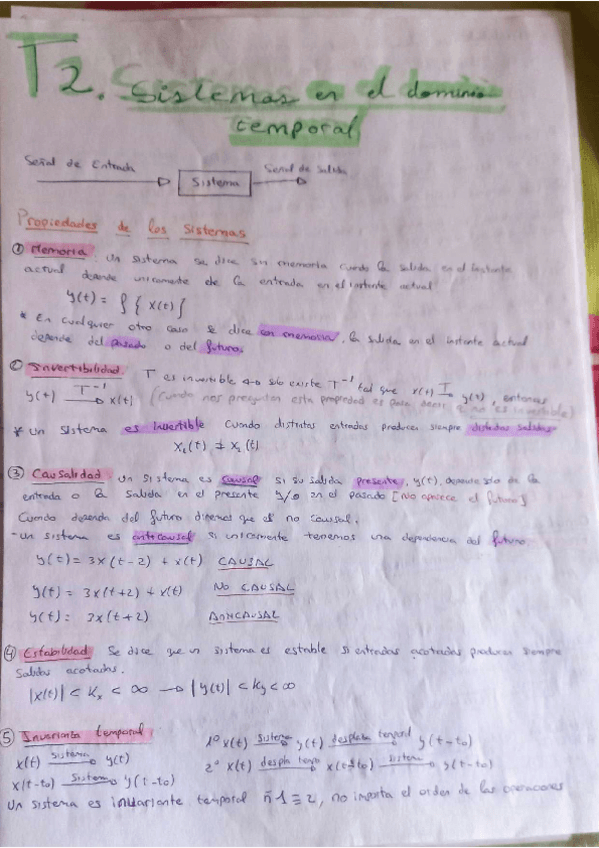 T2. Sistemas en el dominio
temporal
Señal de Entrada
Sistema
Señal de Salida
Propiedades de los Sistemas
① Memoria: Un sistema se dice sin memoria cuando la salida en el instante
actual depende unicamente de la entrada en el instante actual
y(t) = f { x(t) }
* En cualquier otro caso se dice con memoria, la salida en el instante actual
depende del pasado o del futuro.
② Invertibilidad T es invertible si solo existe T⁻¹ tal que x(t) T→ y(t), entonces
y(t) T⁻¹→ x(t) (Cuando nos preguntan esta propiedad es para decir q no es invertible)
* Un sistema es Invertible cuando distintas entradas producen siempre distintas salidas.
x₂(t) ≠ x₁(t)
③ Causalidad Un sistema es causal si su salida presente, y(t), depende sólo de la
entrada o la salida en el presente y/o en el pasado [No aparece el futuro]
Cuando dependa del futuro diremos que es no causal.
- Un sistema es anticausal si unicamente tenemos una dependencia del futuro.
y(t) = 3x(t-2) + x(t) CAUSAL
y(t) = 3x(t+2) + x(t) No CAUSAL
y(t) = 2x(t+2) ANTICAUSAL
④ Estabilidad Se dice que un sistema es estable si entradas acotadas producen siempre
salidas acotadas.
|x(t)| < Kx < ∞ → |y(t)| < Ky < ∞
⑤ Invarianza temporal:
x(t) Sistema→ y(t)
x(t-to) Sistema→ y(t-to)
1º x(t) Sistema→ y(t) desplaza temporal→ y(t-to)
2º x(t) despla tempo→ x(t-to) sistema→ y(t-to)
Un sistema es invariante temporal si 1 ≡ 2, no importa el orden de las operaciones